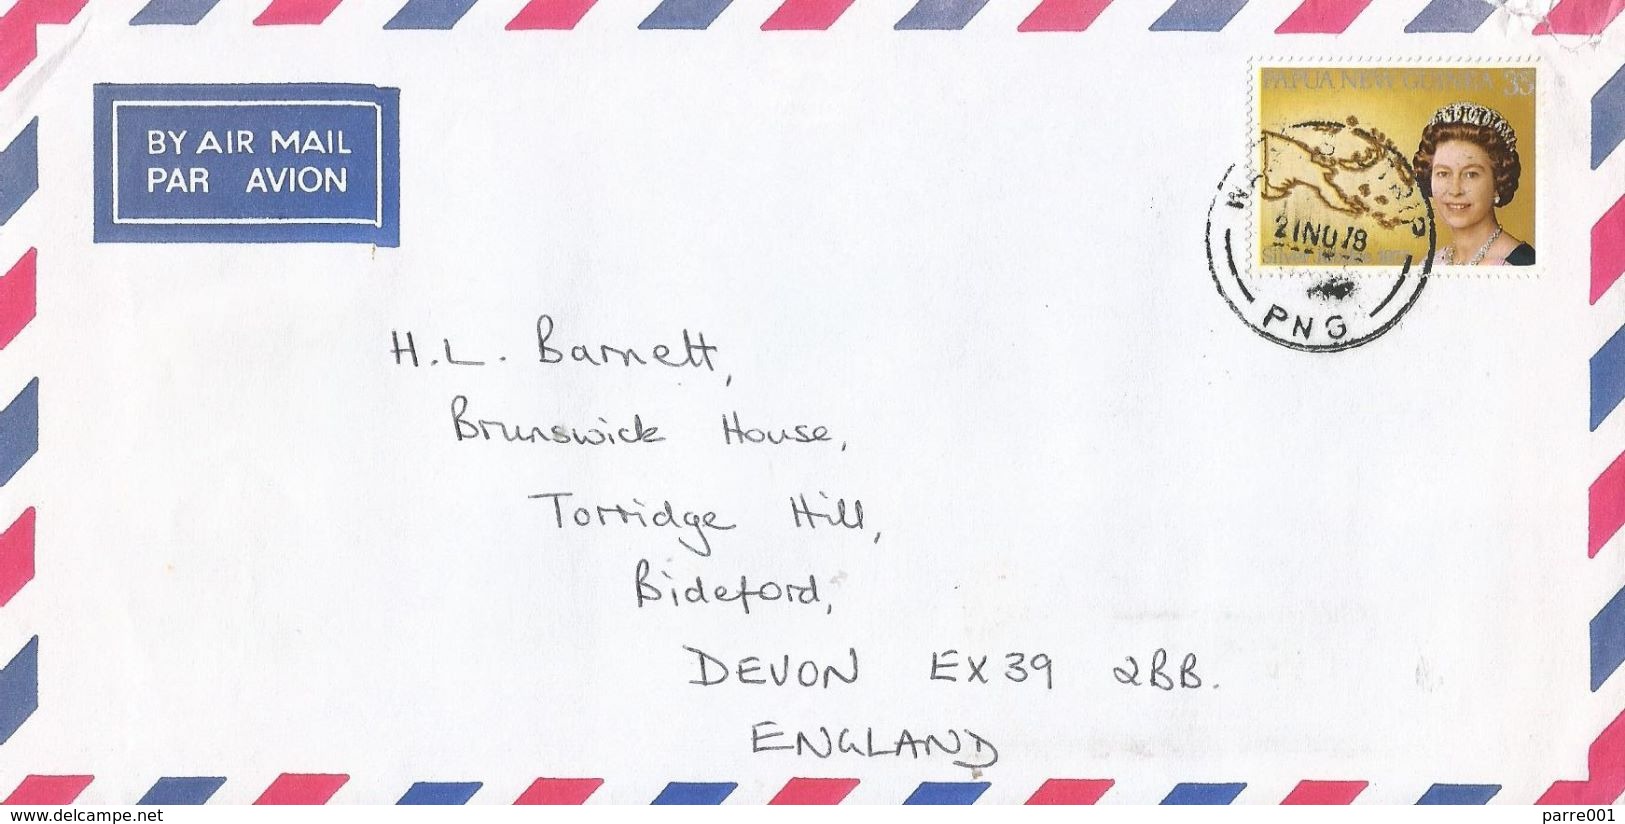 BY AIR MAIL
PAR AVION
PAPUA NEW GUINEA 35
21 NO 78
Silver Jubilee
PNG
H.L. Barnett,
Brunswick House,
Torridge Hill,
Bideford,
DEVON EX39 2BB.
ENGLAND
delcampe.net
parre001